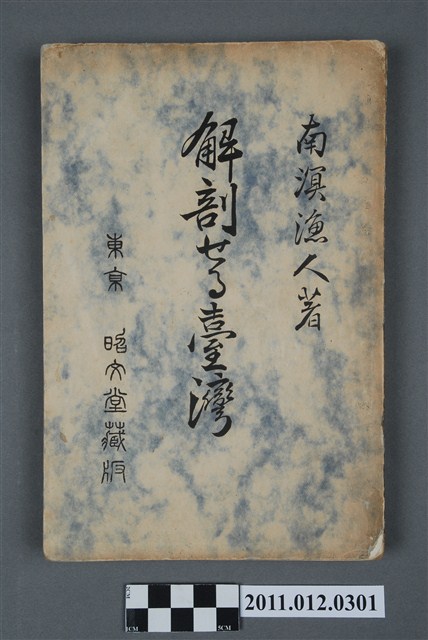 南溟漁人著
解剖せる臺灣
東京 昭文堂藏版
2CM
1CM
5CM
2011.012.0301